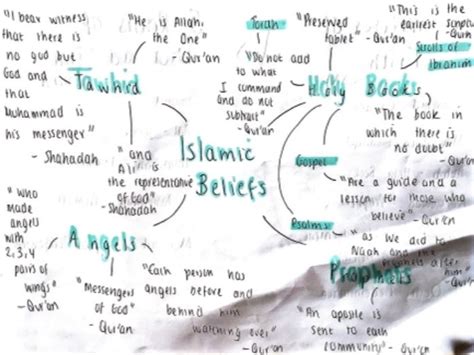 "I bear witness
that there is
no god but
God and
that
Muhammad is
his messenger"
- Shahadah
"He is Allah,
the One"
- Qur'an
Tawhid
"and
Ali is
the representative
of God"
- Shahadah
Islamic
Beliefs
Torah
"Do not add
to what
I command
and do not
subtract"
- Qur'an
"Preserved
tablet"
- Qur'an
Holy Books
"This is the
earliest scripture"
- Qur'an
Scrolls of
Ibrahim
"The book in
which there is
no doubt"
- Qur'an
Gospel
"Are a guide and a
lesson for those who
believe" - Qur'an
Psalms
"as we did to
Nuah and the
after
him"
- Qur'an
Prophets
"An
is
sent to each
community"
- Qur'an
Angels
"who
made
angels
with
2,3,4
pairs of
wings"
- Qur'an
"Messengers
of God"
- Qur'an
"Each person has
angels before and
behind him
watching over"
- Qur'an